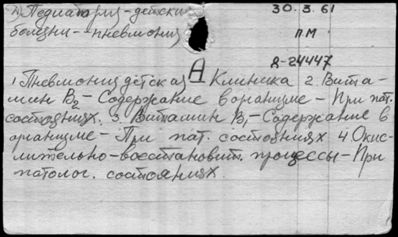 4) Педиатрия - детские 30.3.61
болезни - пневмония ПМ
Д-24447
1 Пневмония детская А Клиника 2. Вита-
мин В2 - Содержание в организме - При пат.
состояниях. 3. Витамин В1 - Содержание в
организме - При пат. состояниях 4 Окис-
лительно-восстановит. процессы - При
патолог. состояниях.